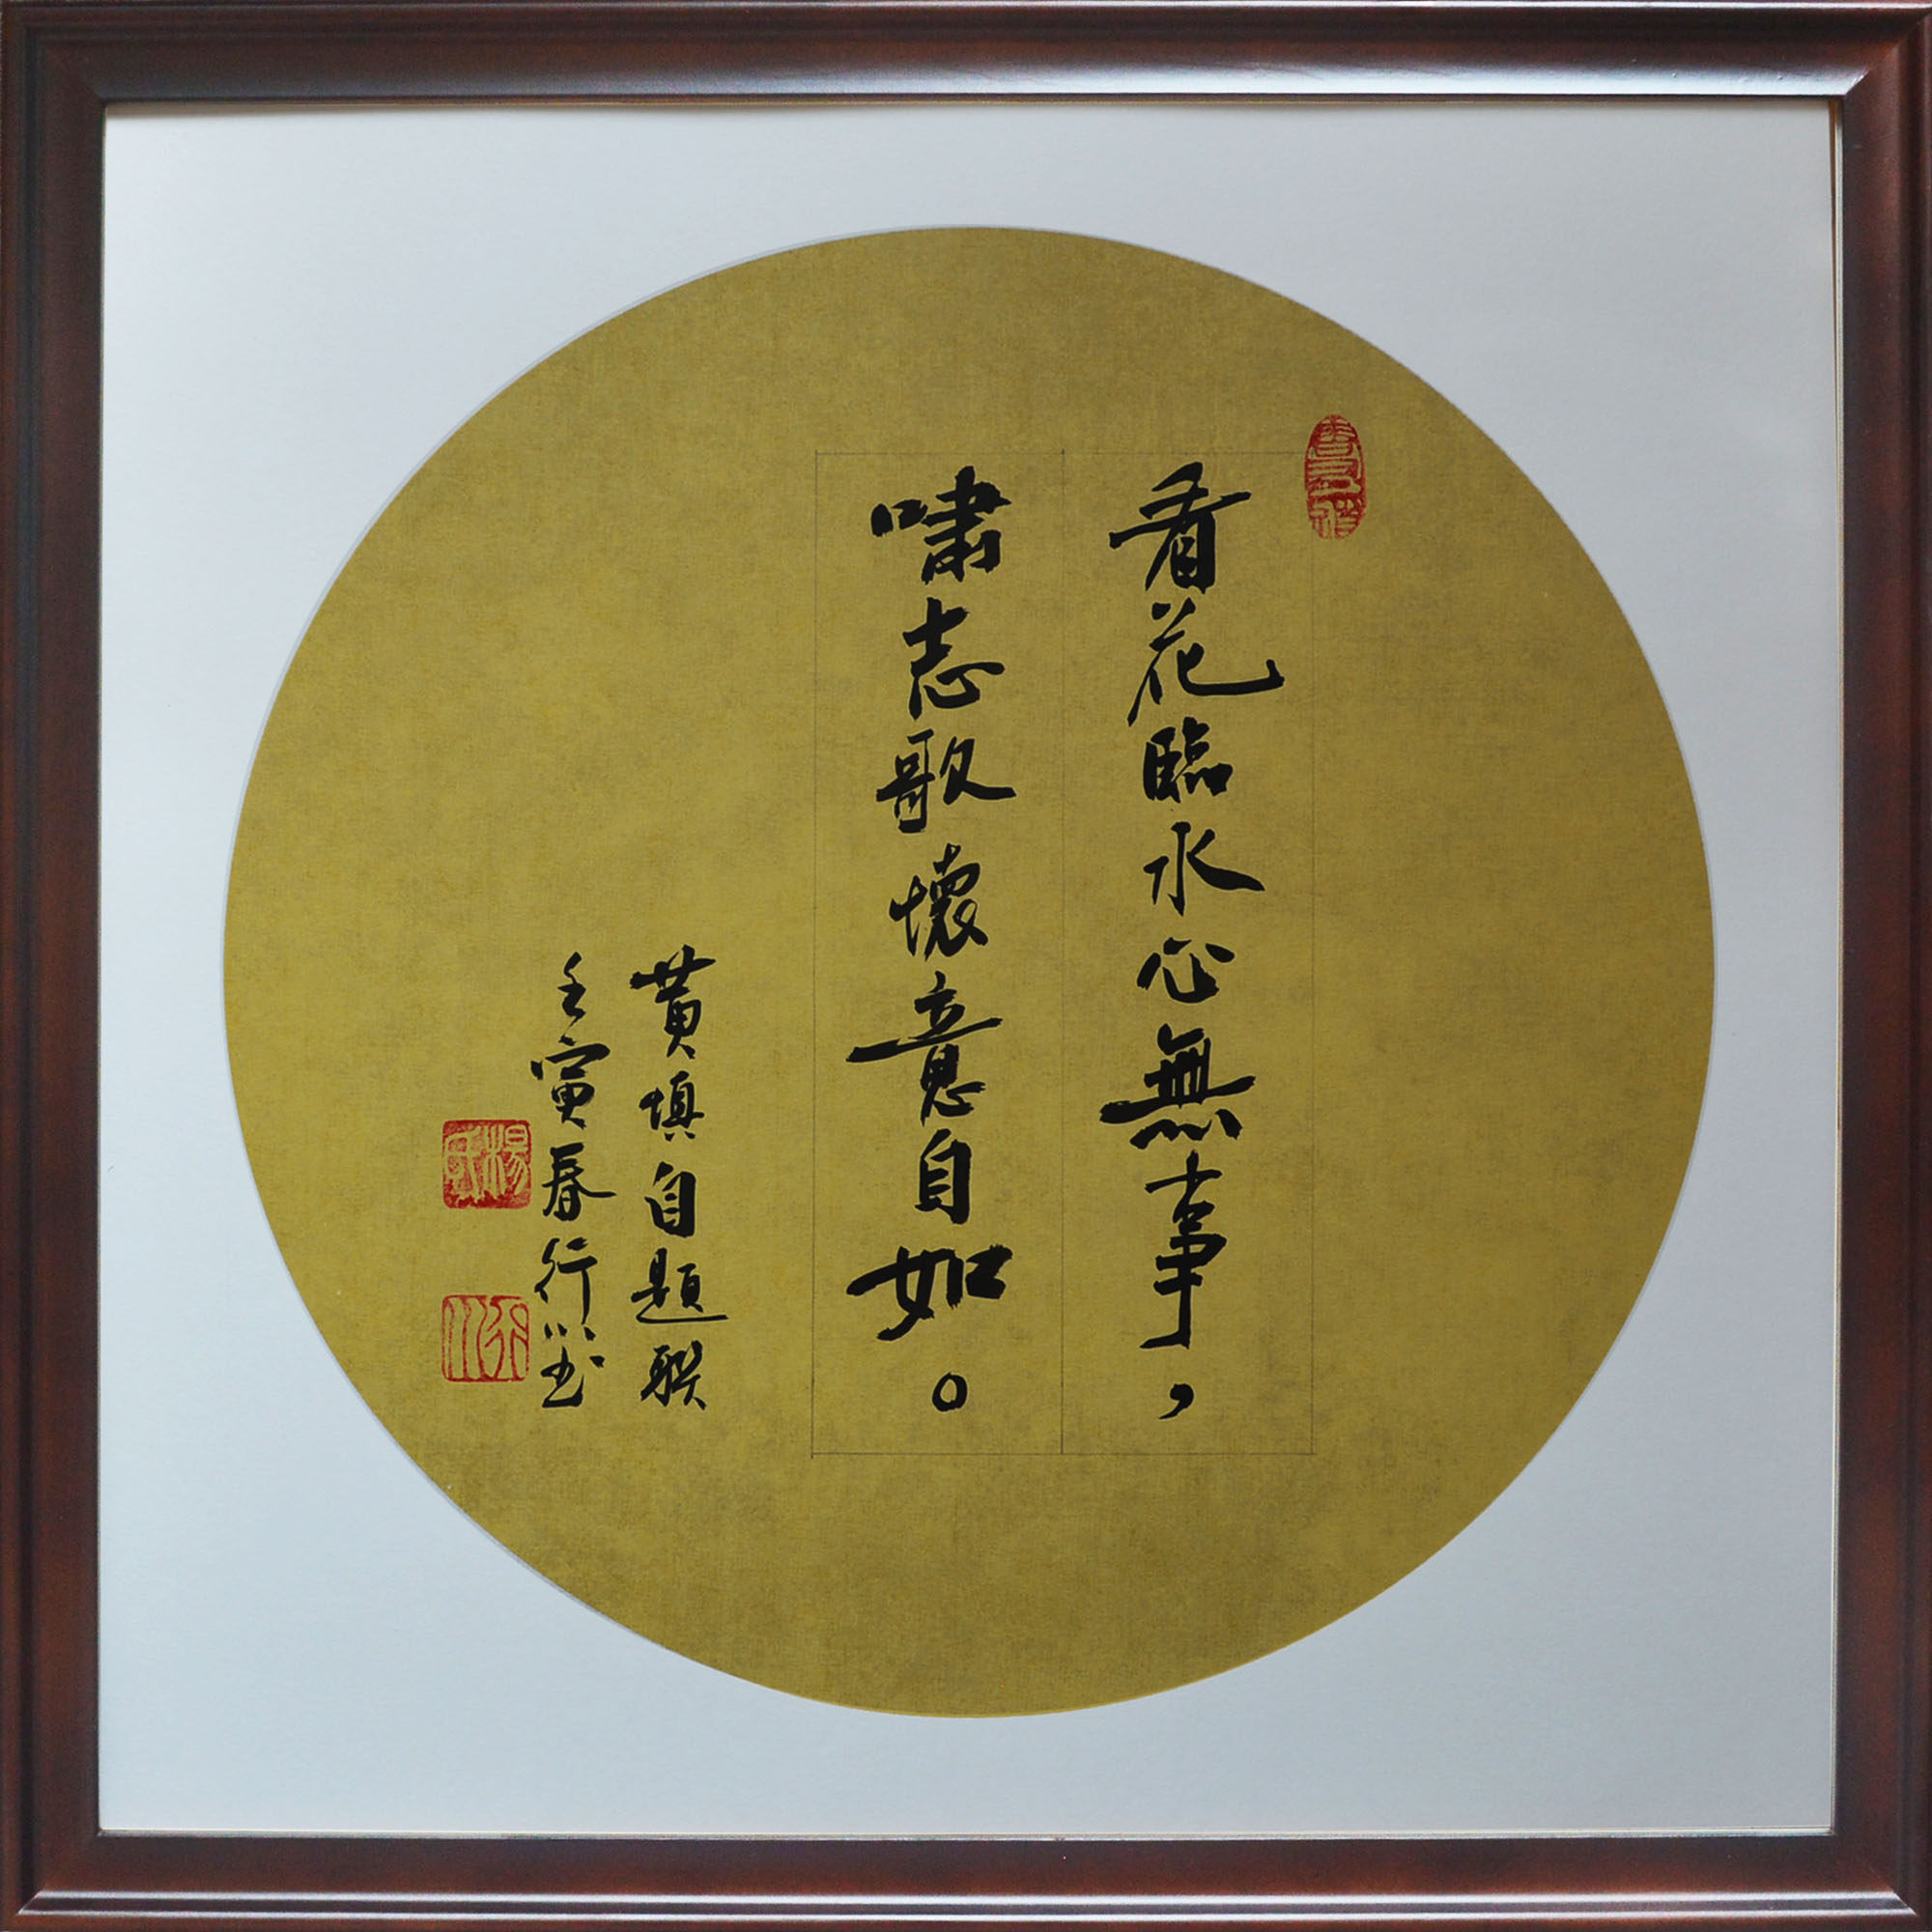 看花臨水心無事，
嘯志歌懷意自如。
黄慎自題联
壬寅春行川书
楊氏